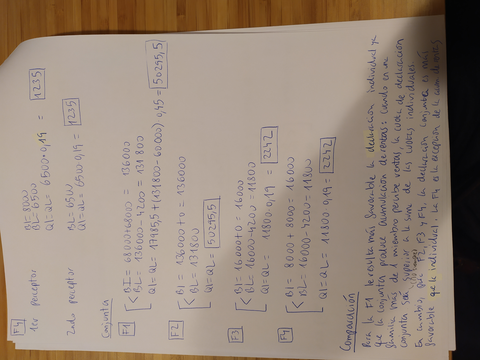 F4
1er perceptor
BI = 8000
BL = 6500
QI=QL= 6500·0,19 = 1235
2ndo perceptor
BL = 6500
QI=QL= 6500·0,19 = 1235
Conjunta
F1
BI = 68000+68000 = 136000
BL = 136000-4200 = 131800
QI=QL = 17985,5+(131800-60000) 0,45 = 50295,5
F2
BI = 136000 + 0 = 136000
BL = 131800
QI=QL= 50295,5
F3
BI = 16000+0 = 16000
BL = 16000-4200 = 11800
QI=QL= 11800·0,19 = 2242
F4
BI = 8000 + 8000 = 16000
BL = 16000-4200 = 11800
QI=QL = 11800 0,19 = 2242
Comparación
Para la F1 le resulta más favorable la declaración individual ya
que la conjunta produce acumulación de rentas: cuando en una
familia más de 1 miembro percibe rentas, la cuota de declaración
conjunta ser superior a la suma de las cuotas individuales.
En cambio, para F2, F3 y F4, la declaración conjunta es más
favorable que la individual. La F4 es la excepción de la